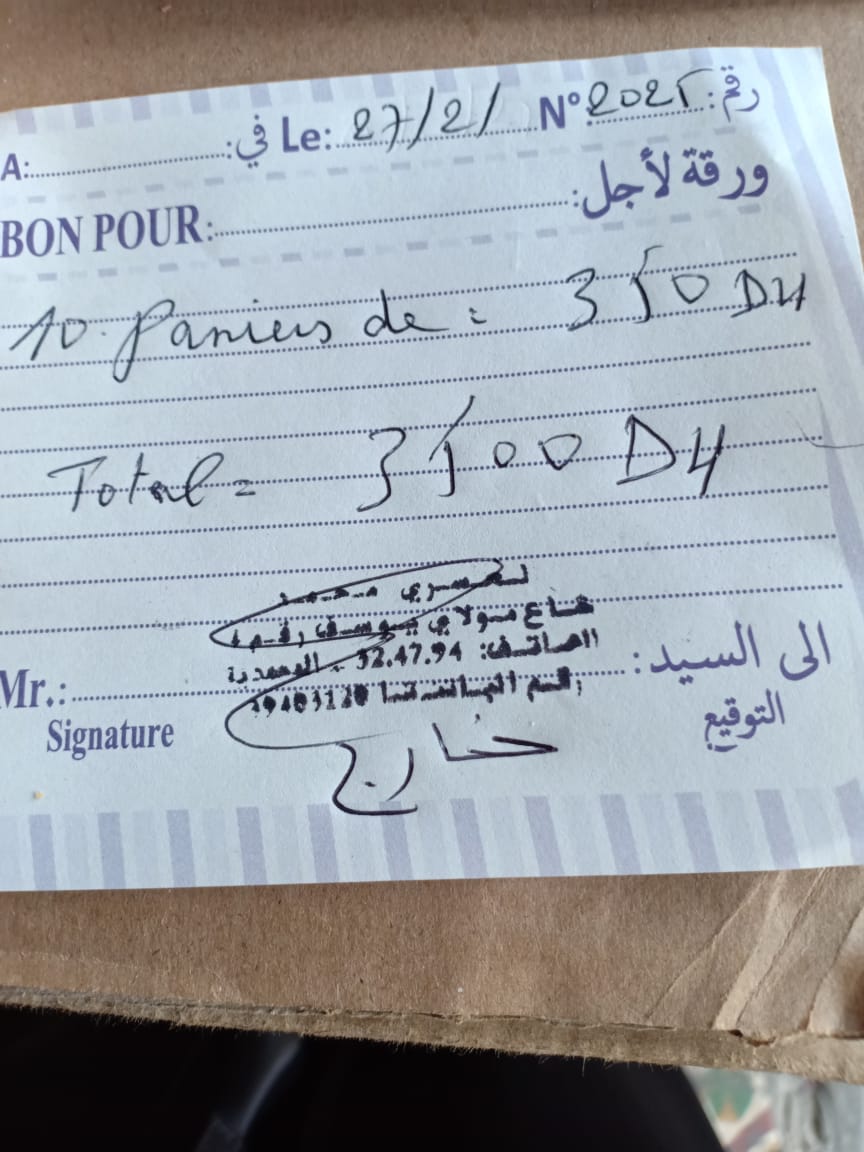 A: في: Le: 27/2/ N° 2025 رقم:
BON POUR: ورقة لأجل:
10 Paniers de = 350 DH
Total = 3500 DH
محمد
شارع مولاي يوسف رقم
الهاتف: 32.47.94 - المحمدية
رقم 39403120
Mr.: الى السيد:
Signature التوقيع